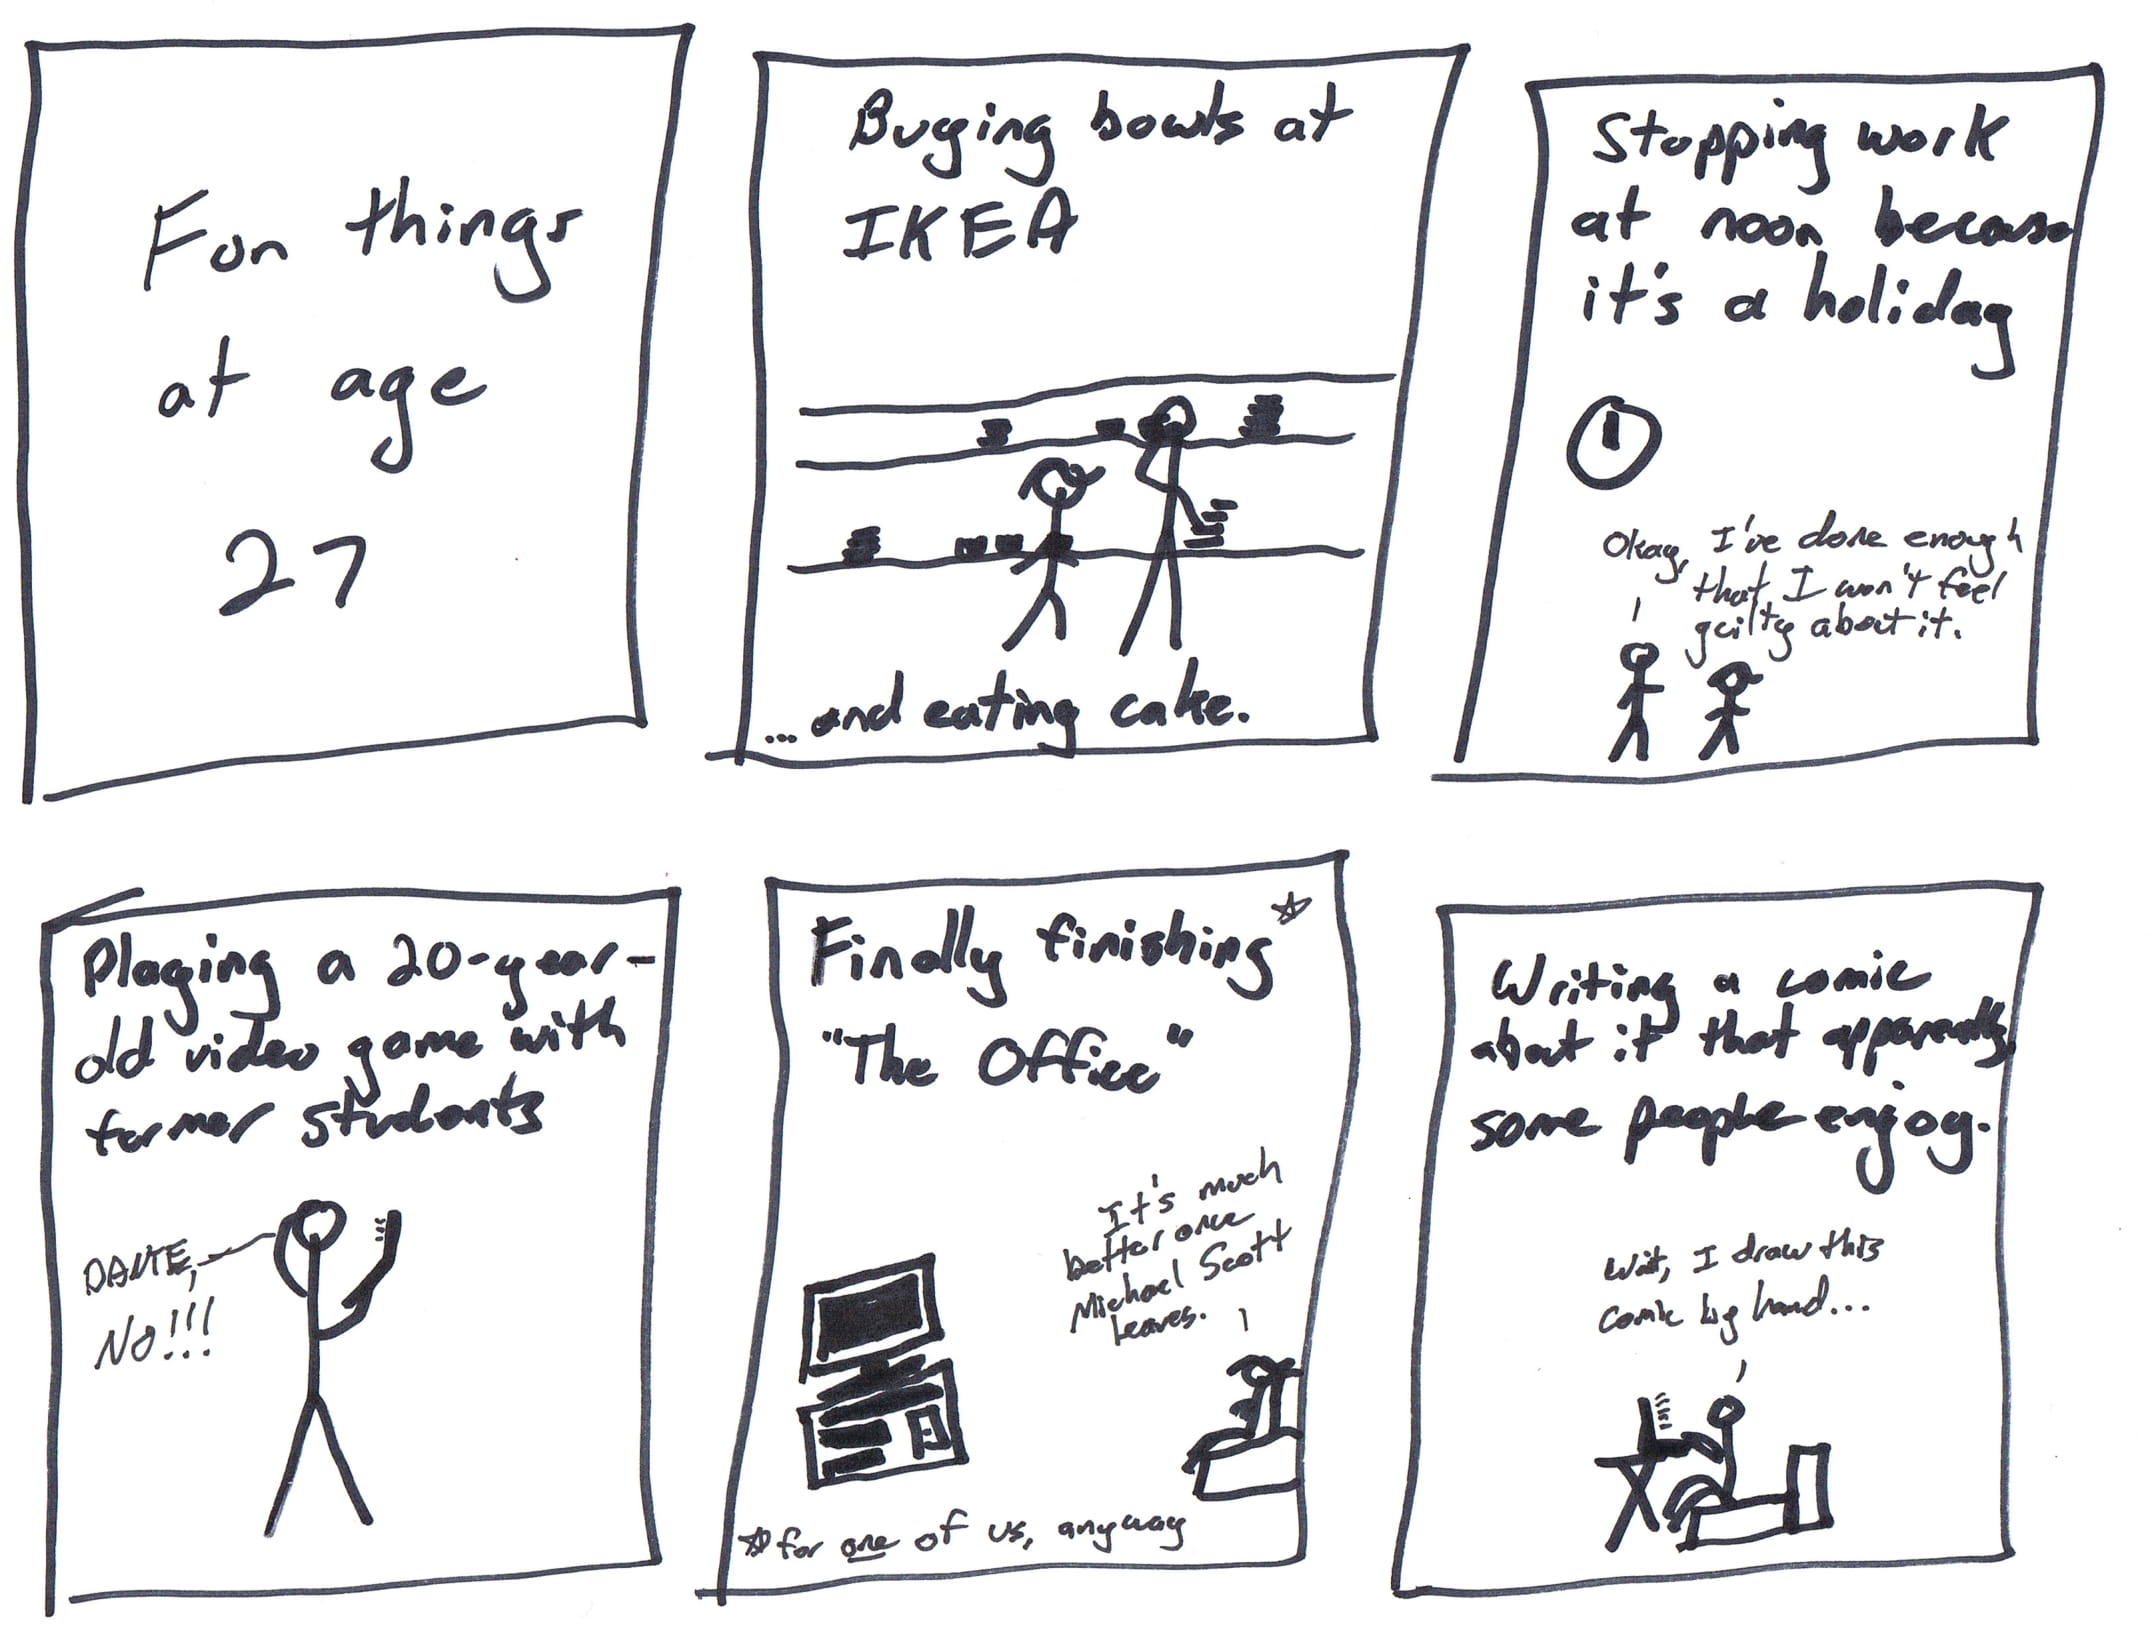 Fun things
at age
27
Buying bowls at
IKEA
...and eating cake.
Stopping work
at noon because
it's a holiday
Okay, I've done enough
that I won't feel
guilty about it.
Playing a 20-year-
old video game with
former students
DANTE,
NO!!!
Finally finishing*
"The Office"
It's much
better once
Michael Scott
leaves.
*for one of us, anyway
Writing a comic
about it that apparently
some people enjoy.
Wait, I draw this
comic by hand...